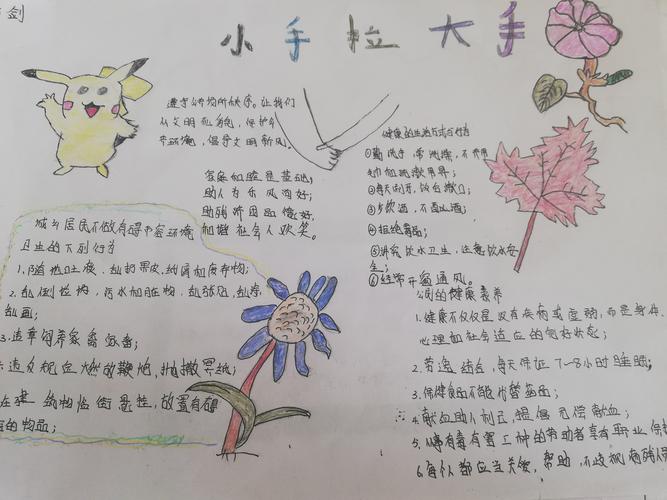 剑
小手拉大手
遵守公共场所秩序。让我们
从文明礼貌，保护公
共环境，倡导文明新风。
家庭和睦是基础，
助人为乐风尚好；
助残济困品德好，
和谐社会人欢笑。
健康的生活方式与行为
①勤洗手，常洗澡，不共用
毛巾和洗漱用具；
②每天刷牙，饭后漱口；
③少饮酒，不酗酒；
④拒绝毒品；
⑤讲究饮水卫生，注意饮水安
全；
⑥经常开窗通风。
城乡居民不做有碍市容环境
卫生的下列行为
1.随地吐痰、乱扔果皮、纸屑和废弃物；
2.乱倒垃圾，污水和脏物，乱张贴，乱涂
乱画；
3.违章饲养家禽家畜；
违反规定燃放鞭炮，抛撒冥纸；
在建筑物临街悬挂，放置有碍
的物品；
公民的健康素养
1.健康不仅仅是没有疾病或虚弱，而是身体、
心理和社会适应的完好状态；
2.劳逸结合，每天保证7～8小时睡眠；
3.保健食品不能代替药品；
4.献血助人利己，提倡无偿献血；
5.从事有毒有害工种的劳动者享有职业保护
6.每个人都应当关爱，帮助，不歧视病残人